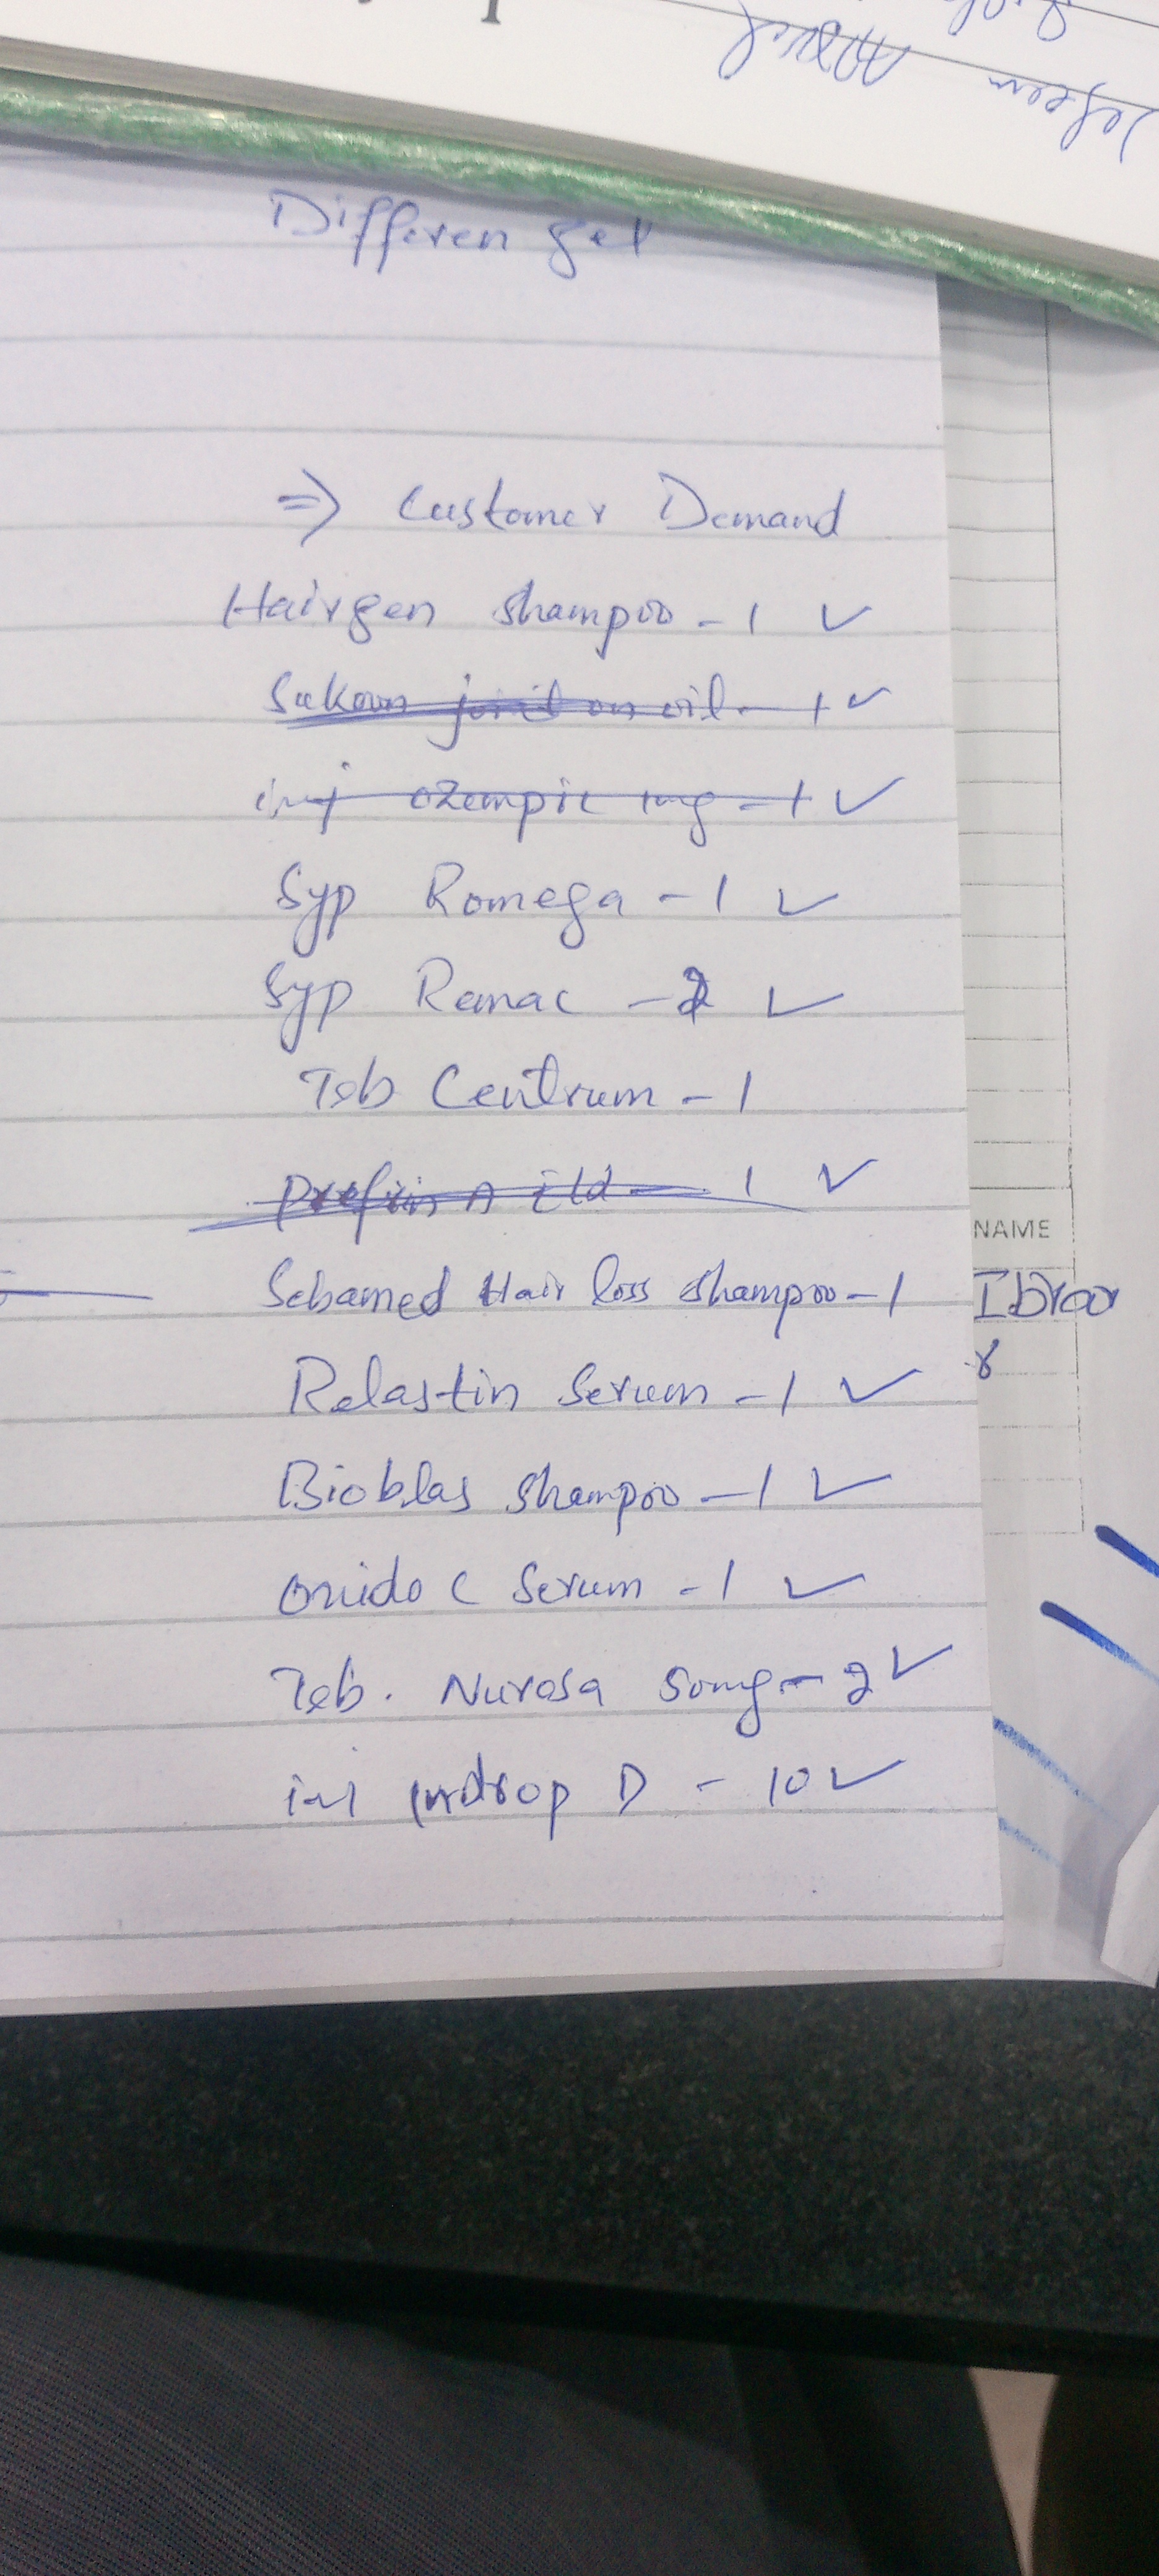 Differen gel
⇒ Customer Demand
Hairgen shampoo - 1 ✓
Sukoon on oil - 1 ✓
inj ozempic 1mg - 1 ✓
Syp Romega - 1 ✓
Syp Remac - 2 ✓
Tab Centrum - 1
1 ✓
NAME
Sebamed Hair loss shampoo - 1
Relastin Serum - 1 ✓
Bioblas shampoo - 1 ✓
C Serum - 1 ✓
Tab. Nurosa 50mg - 2 ✓
inj indrop D - 10 ✓